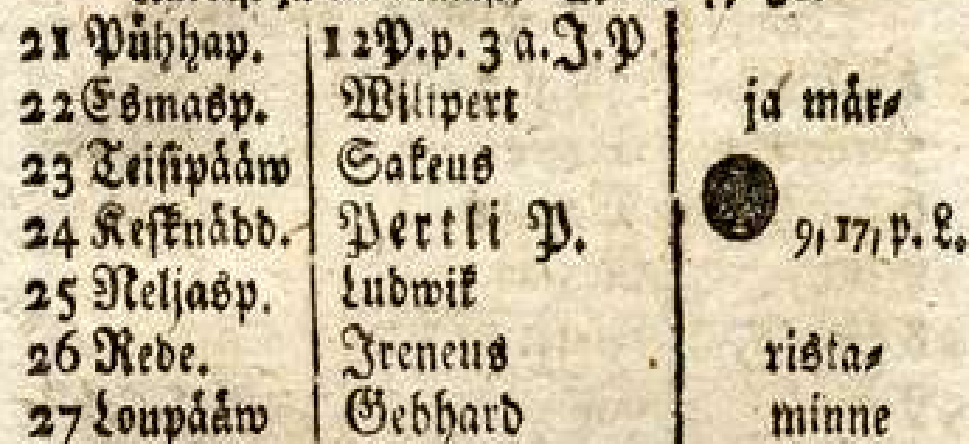 21 Pühhap. 12P.p. 3 a.J.P
22 Esmasp. Wilipert ja mår⸗
23 Teisipååw Sakeus
24 Kesknådd. Pertli P. 9, 17, p. L.
25 Neljasp. Ludwik
26 Rede. Ireneus rista⸗
27 Loupååw Gebhard minne